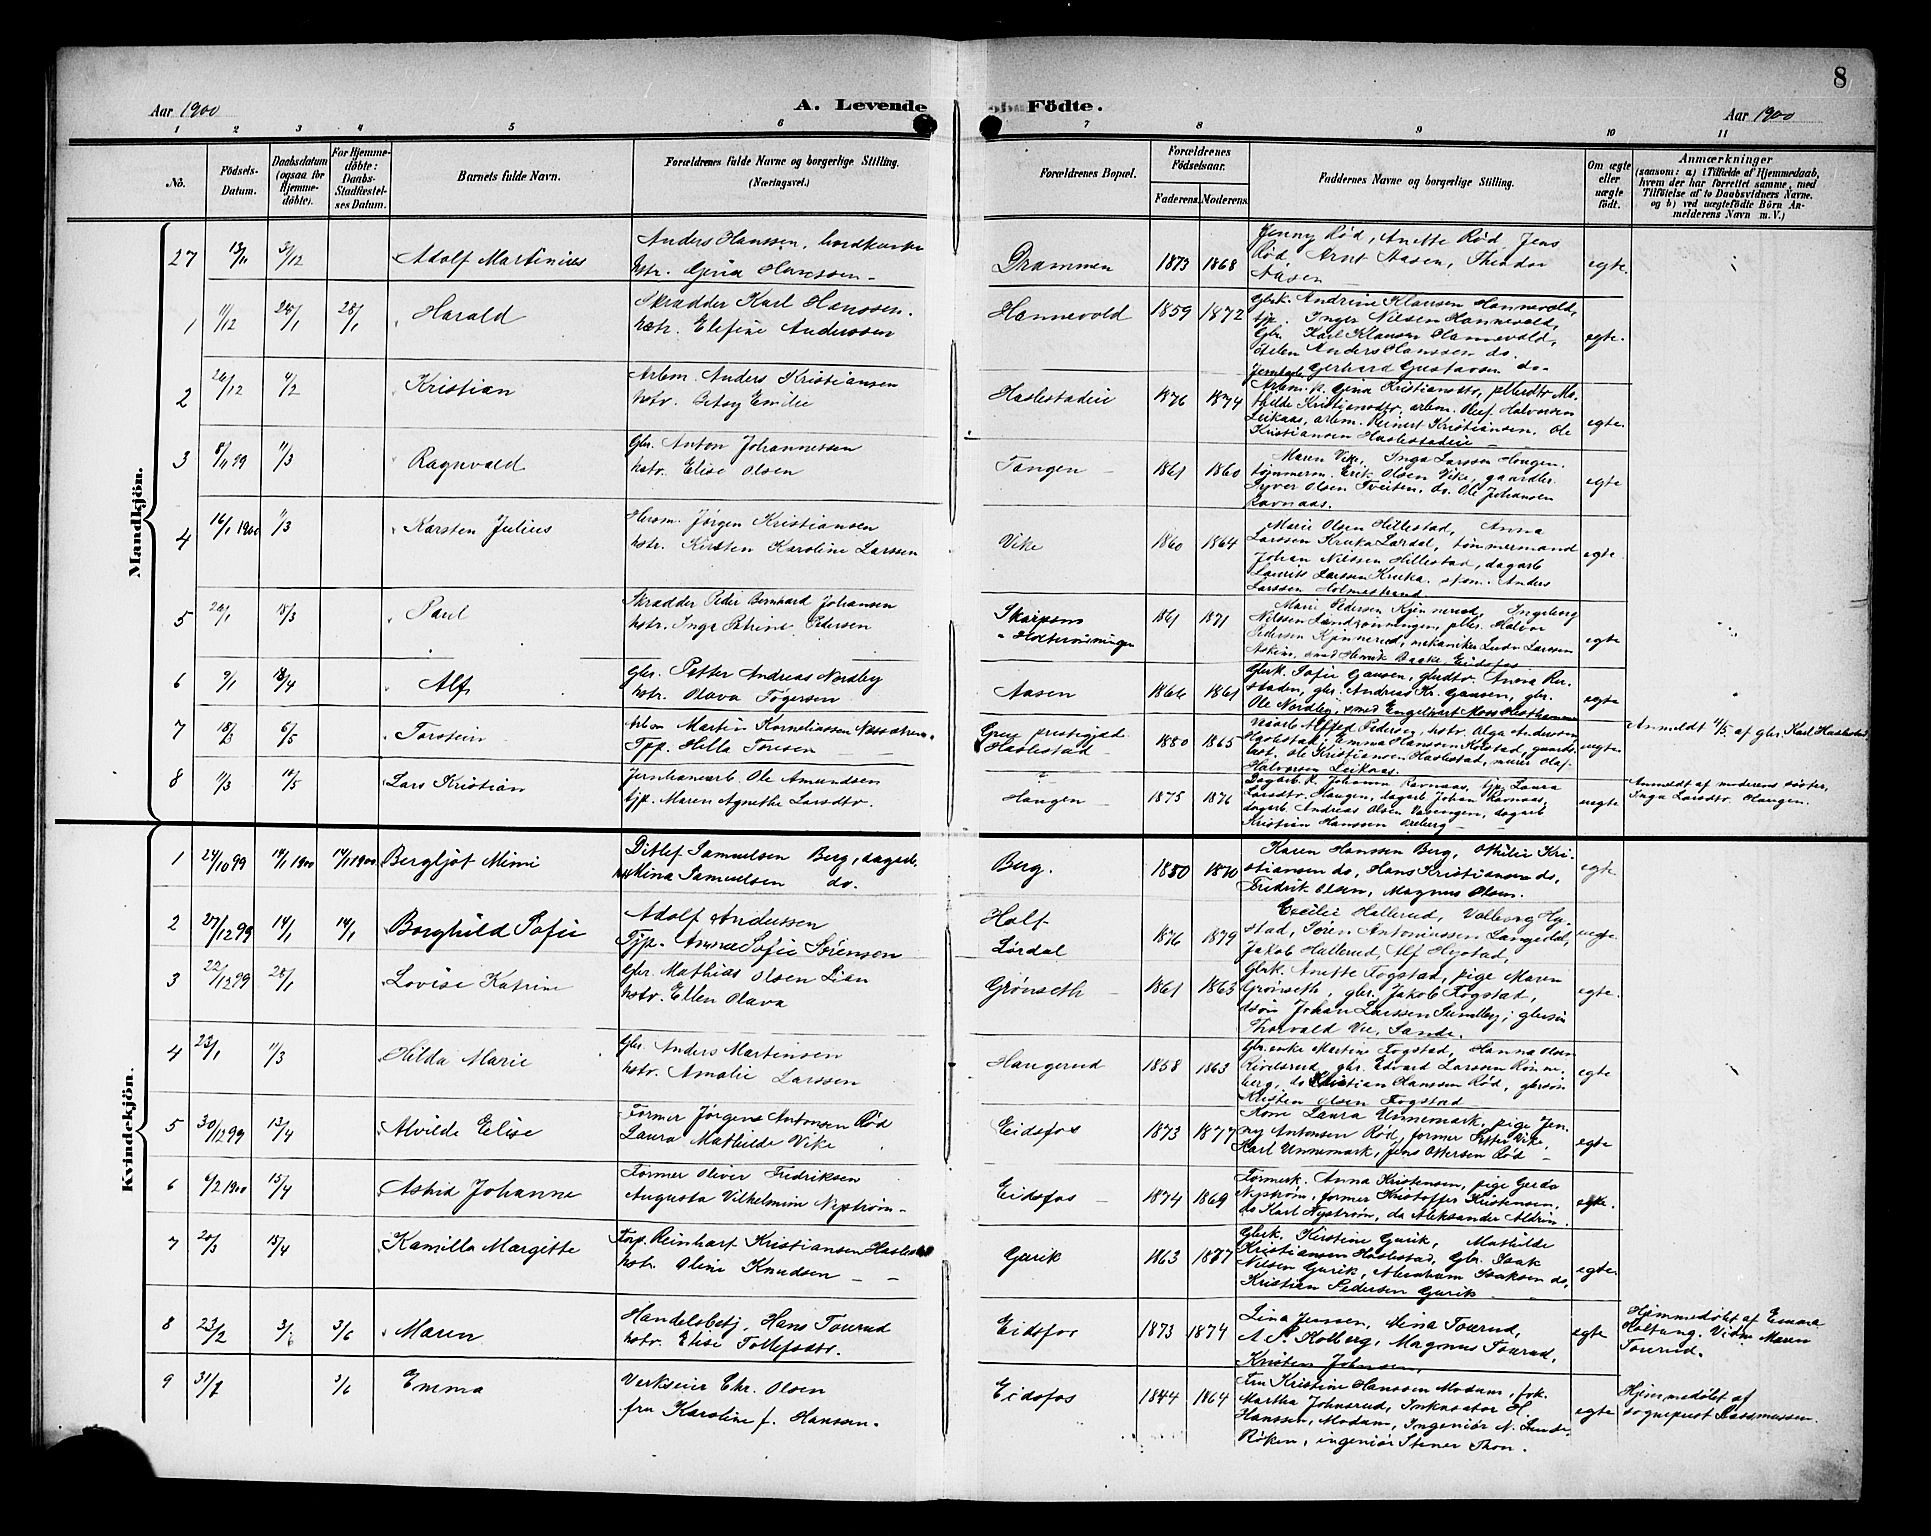 8
Aar 1900
A. Levende Födte.
Aar 1900
1 2 3 4 5 6 7 8 9 10 11
No.
Födsels-Datum.
Daabsdatum (ogsaa for Hjemme-döbte).
For Hjemme-döbte: Daabs-Stadfæstel-ses Datum.
Barnets fulde Navn.
Forældrenes fulde Navne og borgerlige Stilling. (Næringsvei.)
Forældrenes Bopæl.
Forældrenes Födselsaar.
Faderens. Moderens.
Faddernes Navne og borgerlige Stilling.
Om ægte eller uægte födt.
Anmærkninger
(saasom: a) i Tilfælde af Hjemmedaab,
hvem der har forrettet samme, med
Tilföielse af to Daabsvidners Navne.
og b) ved uægtefödte Börn An-
melderens Navn m. V.)
Mandkjön.
27 13/11 3/12 Adolf Martinius
Anders Hanssen,
hstr. Gina Hanssen
Drammen 1873 1868
Jenny Rød, Anette Rød, Jens
Rød, Arnt Aasen, Theodor
Aasen
egte.
1 11/12 28/1 28/1 Harald
Skrædder Karl Hanssen.
hstr. Elefine Anderssen
Hannevold 1859 1872
Gbrk. Andrine Klausen Hannevold,
tjp. Inger Nilsen Hannevold,
Gbr. Karl Klausen Hannevold,
Anders Hanssen do.
Gerhard Gustavsen do.
egte.
2 26/12 4/2 Kristian
Arbm. Anders Kristiansen
hstr. Betsy Emilie
Haslestadeie 1876 1874
Arbm. k. Gina Kristiansdtr,
Kristiansdtr, arbm. Oluf Halvorsen
Leikaas, arbm. Reinert Kristiansen, Ole
Kristiansen Haslestadeie
egte.
3 8/11 99 11/3 Ragnvald
Gbr. Anton Johannessen
hstr. Elise Olsen
Tangen 1861 1860
Maren Vike, Inga Larssen Hougen.
tømmerm. Erik Olsen Vike, gaardbr.
Syver Olsen Tveiten, do. Ole Johansen
Ravnaas.
egte
4 16/1 1900 11/3 Karsten Julius
Jørgen Kristiansen
hstr. Kirsten Karoline Larssen
Vike 1860 1864
Marie Olsen Hillestad, Anna
Larssen Kruka Lørdal, tømmermand
Johan Nilssen Hillestad, dagarb
Laurits Larssen Kruka. Anders
Larssen Holmestrand
egte.
5 26/1 18/3 Paul
Skrædder Peder Bernhard Johansen
hstr. Inga Petrine Pedersen
1861 1871
Marie Pedersen Kjønnerød, Ingeborg
Nilssen
Pedersen Kjønnerød, mekaniker Ludv Larssen
smed Henrik Baake Eidsfos
egte
6 9/1 Alf
Gbr. Petter Andreas Nordby
hstr. Olava Fógersen
Aasen 1866 1861
Gbrk. Sofie Gausen, gbrdtr. Anna
gbr. Andreas Kr. Gausen, gbr.
Ole Nordby, smed Engelhart Moss
egte
7 18/3 6/5 Torstein
Arbm Martin Korneliussen
Tpp. Hella Toresen
Haslestad 1880 1865
Alfred Pedersen, hstr. Olga Anderssen
Haslestad, Emma Hanssen
Ole Kristiansen Haslestad, murer Olaf
Halvorsen Leikaas.
uegte
Anmeldt 4/5 af gbr. Karl Haslestad
8 11/3 10/5 Lars Kristian
Jernbanearb. Ole Amundsen
tjp. Maren Agnethe Larsdtr.
?
Haugen 1875 1876
Dagarb. k. Johanna Ravnaas, tjp. Laura
Larsdtr. Haugen, dagarb Johan Ravnaas,
dagarb Andreas Olsen dagarb
Kristian Hanssen
uegte
Anmeldt af moderens søster,
Inga Larsdtr. Haugen.
Kvindekjön.
1 24/10 99 14/1 1900 14/1 1900 Bergljot Mimi
Ditlef Samuelsen Berg, dagarb.
Mina Samuelsen do.
Berg. 1850 1870
Karen Hanssen Berg, Othilie Kri-
stiansen do, Hans Kristiansen do,
Fredrik Olsen, Magnus Olsen.
egte
2 27/12 99 14/1 14/1 Borghild Sofie
Adolf Anderssen
Tjp. Anna Sofie Sørensen
Holt
Lørdal 1876 1879
Cecilie Hallerud, Valborg Hy-
stad, Søren Antoniussen Langedal,
Jakob Hallerud, Alf Hystad,
uegte
3 22/12 99 28/1 Lovise Katrine
Gbr. Mathias Olsen Lian
hstr. Ellen Olava
Grønseth 1861 1863
Gbrk. Anette Fogstad, pige Maren
Grønseth, gbr. Jakob Fogstad,
Johan Larssen Sundby, gbrsøn
Thorvald Vie, Sande.
egte.
4 23/1 11/3 Hilda Marie
Gbr. Anders Martinsen
hstr. Amalie Larssen
Haugerud 1858 1863
Gbr.enke Martine Fogstad, Hanna Olsen
gbr. Edvard Larssen Røn
berg, do Kristian Hanssen Rød, gbrsøn
Kristen Olsen Fogstad
egte
5 30/12 99 13/4 Alvilde Elise
Former Jørgen Antonsen Rød
Laura Mathilde Vike
Eidsfos 1873 1877
Kone Laura Unnemark, pige Jen-
ny Antonsen Rød, former Petter Vike,
Karl Unnemark, Jens Ottersen Rød
egte
6 6/2 1900 13/4 Astrid Johanne
Former Oliver Fredriksen
Augusta Vilhelmine Nystrøm
Eidsfos 1874 1869
Formersk. Anna Kristensen, pige Gerda
Nystrøm, former Kristoffer Kristensen,
do Karl Nystrøm, do Aleksander Aldrin
egte.
7 28/3 15/4 Kamilla Margitte
Reinhart Kristiansen Haslestad
hstr. Oline Knudsen
Gurik 1863 1877
Gbrk. Kirstine Gurik, Mathilde
Kristiansen Haslestad, Gbr. Isak
Nilsen Gurik, Abraham Isaksen do,
Kristian Pedersen Gurik
egte.
8 23/2 3/6 3/6 Maren
Handelsbetj. Hans Tourud
hstr. Elise Tollefsdtr.
Eidsfos 1873 1874
Lina Jenssen, Lina Tourud,
A. P. Kolberg, Magnus Tourud,
Kristen Johnsen,
egte
Hjemmedøbt af Emma
Holtung. Vidne Maren
Tourud.
9 31/7 3/6 Emma
Verkseier Chr. Olsen
fru Karoline f. Hanssen.
Eidsfos 1844 1864
Fru Kristine Hanssen Modum, frk.
Martha Johnsrud, Inkasator H.
Hanssen, Modum, Ingeniør N. Lunde
Røken, ingeniør Stener Thon.
egte
Hjemmedøbt af
sogneprest Rasmussen.